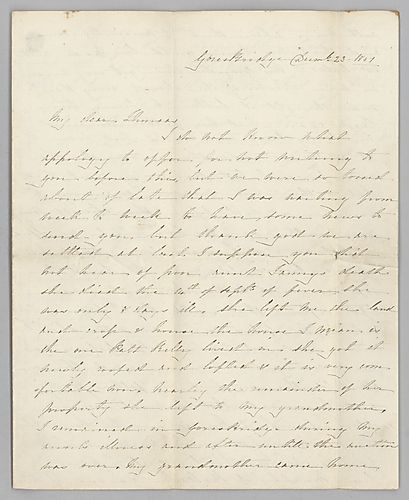 Goresbridge Decmbr 23 1861
My dear Thomas
I do not know what
appology to offer for not writing to
you before this, but we were so tossed
about of late that I was waiting from
week to week to have some news to
send you, but thank god we are
settled at last. I suppose you did
not hear of poor aunt Fannys death
she died the 10th of Septbr of fever she
was only 8 days ill, she left me the land
and crop & house the house I mean is
the one Patt Kelly lived in, she got it
newly roped and lofted & it is very com
fortable now, nearly the remainder of her
property she left to my grandmother,
I remained in Goresbridge during my
aunts illness and after untill the auction
was over. My grandmother came home